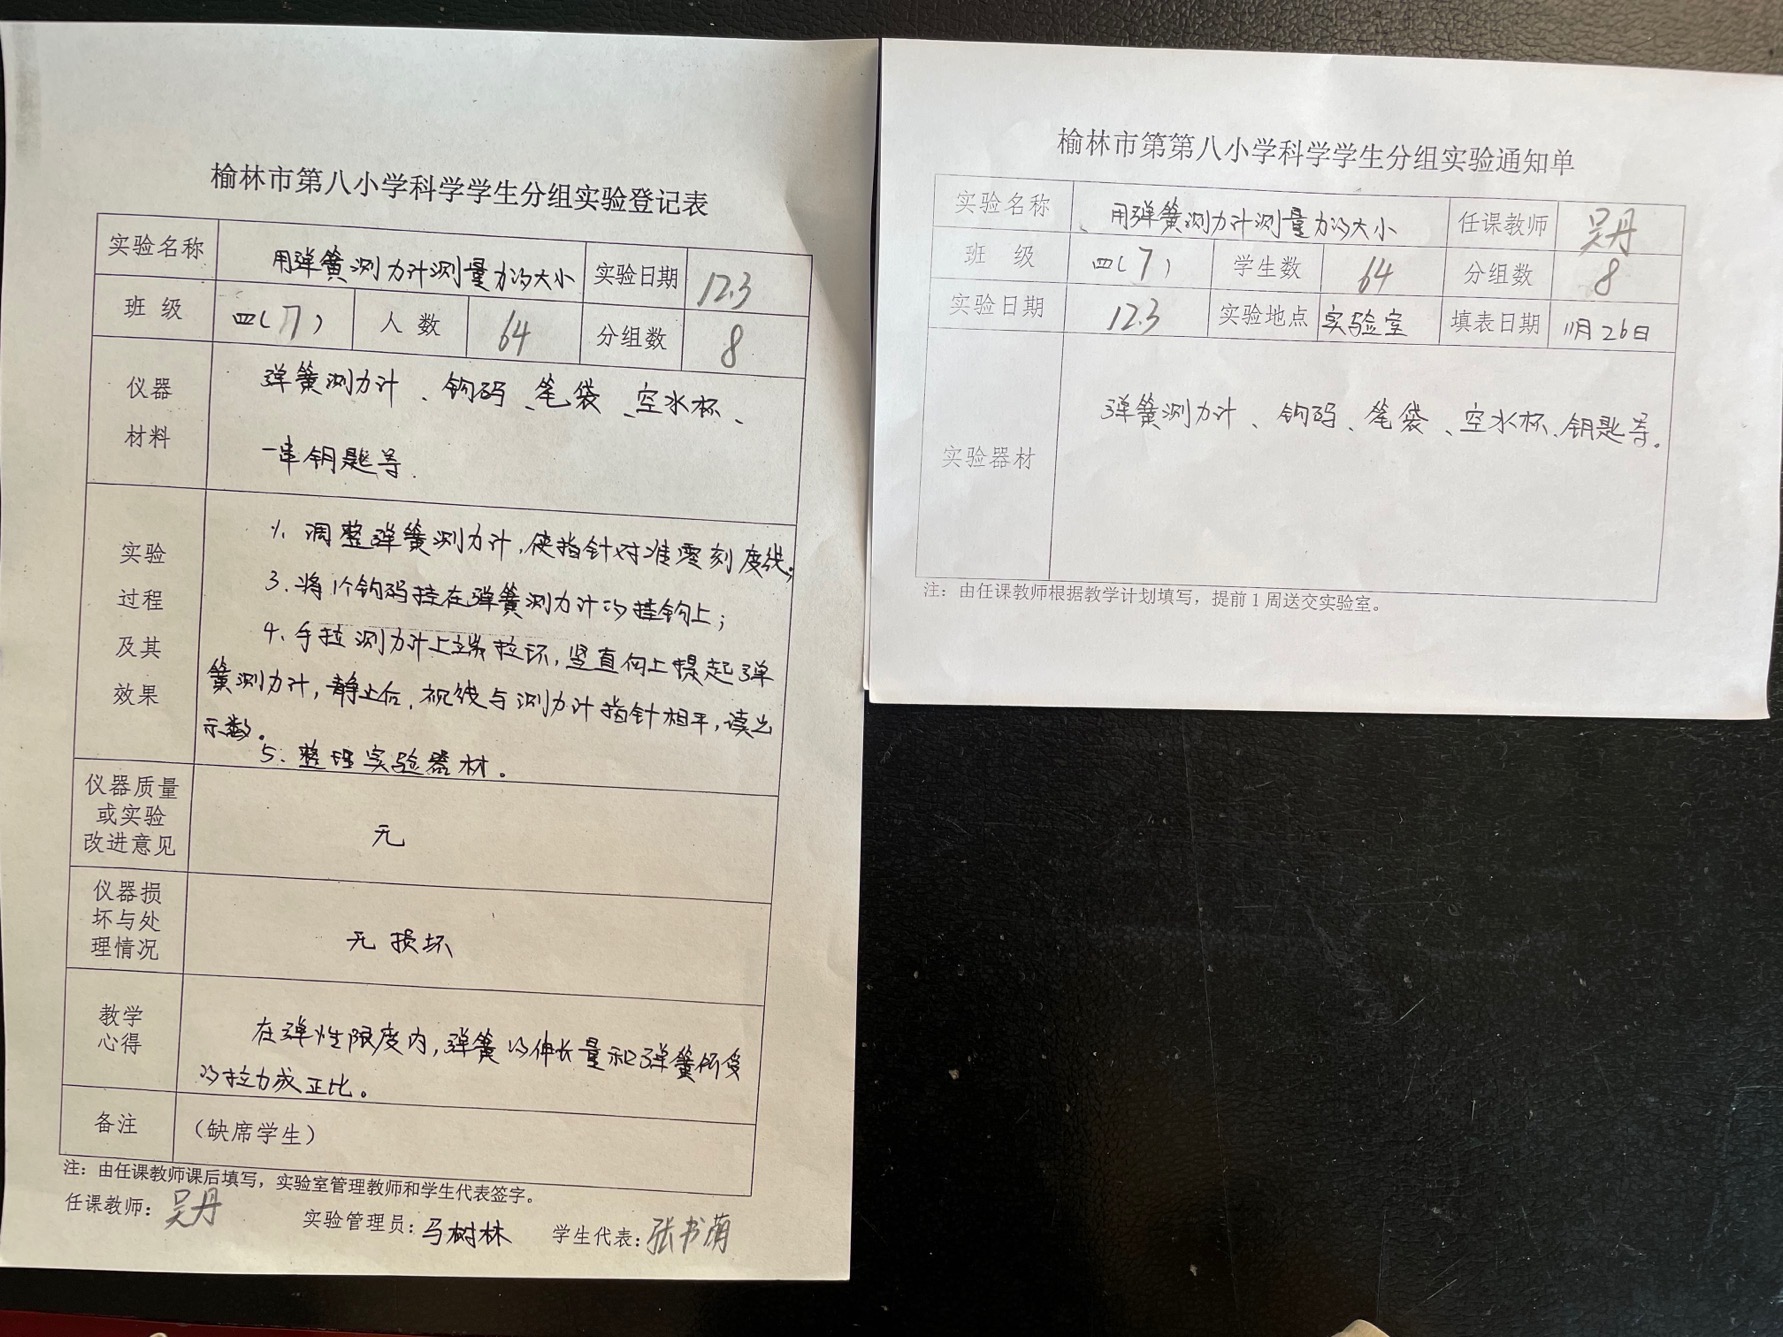 榆林市第八小学科学学生分组实验登记表
实验名称 用弹簧测力计测量力的大小 实验日期 12.3
班 级 四(7) 人 数 64 分组数 8
仪器
材料
弹簧测力计、钩码、笔袋、空水杯、
一串钥匙等.
实验
过程
及其
效果
1. 调整弹簧测力计,使指针对准零刻度线;
3. 将1个钩码挂在弹簧测力计的挂钩上;
4. 手拉测力计上端拉环,竖直向上提起弹
簧测力计,静止后,视线与测力计指针相平,读出
示数。
5. 整理实验器材。
仪器质量
或实验
改进意见
无
仪器损
坏与处
理情况
无损坏
教学
心得
在弹性限度内,弹簧的伸长量和弹簧所受
的拉力成正比。
备注 (缺席学生)
注:由任课教师课后填写,实验室管理教师和学生代表签字。
任课教师:吴丹 实验管理员:马树林 学生代表:张书萌
榆林市第第八小学科学学生分组实验通知单
实验名称 用弹簧测力计测量力的大小 任课教师 吴丹
班 级 四(7) 学生数 64 分组数 8
实验日期 12.3 实验地点 实验室 填表日期 11月26日
实验器材 弹簧测力计、钩码、笔袋、空水杯、钥匙等.
注:由任课教师根据教学计划填写,提前1周送交实验室。